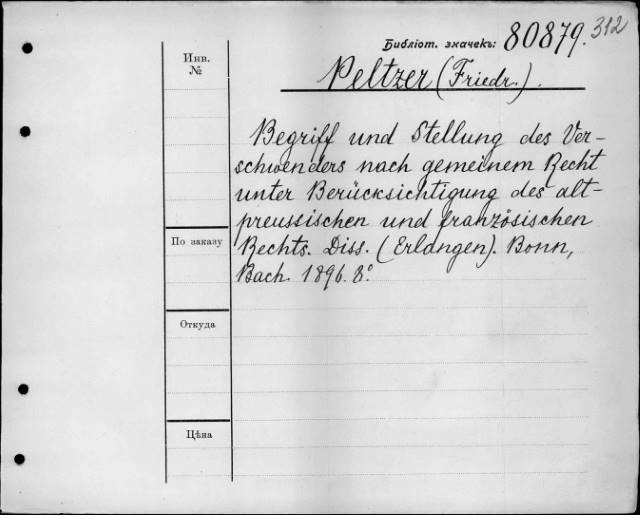 Библіот. значекъ: 80879. 312
Инв.
№
Peltzer (Friedr.).
Begriff und Stellung des Ver-
schwenders nach gemeinem Recht
unter Berücksichtigung des alt-
preussischen und französischen
По заказу
Rechts. Diss. (Erlangen). Bonn,
Bach. 1896. 8°.
Откуда
Цѣна